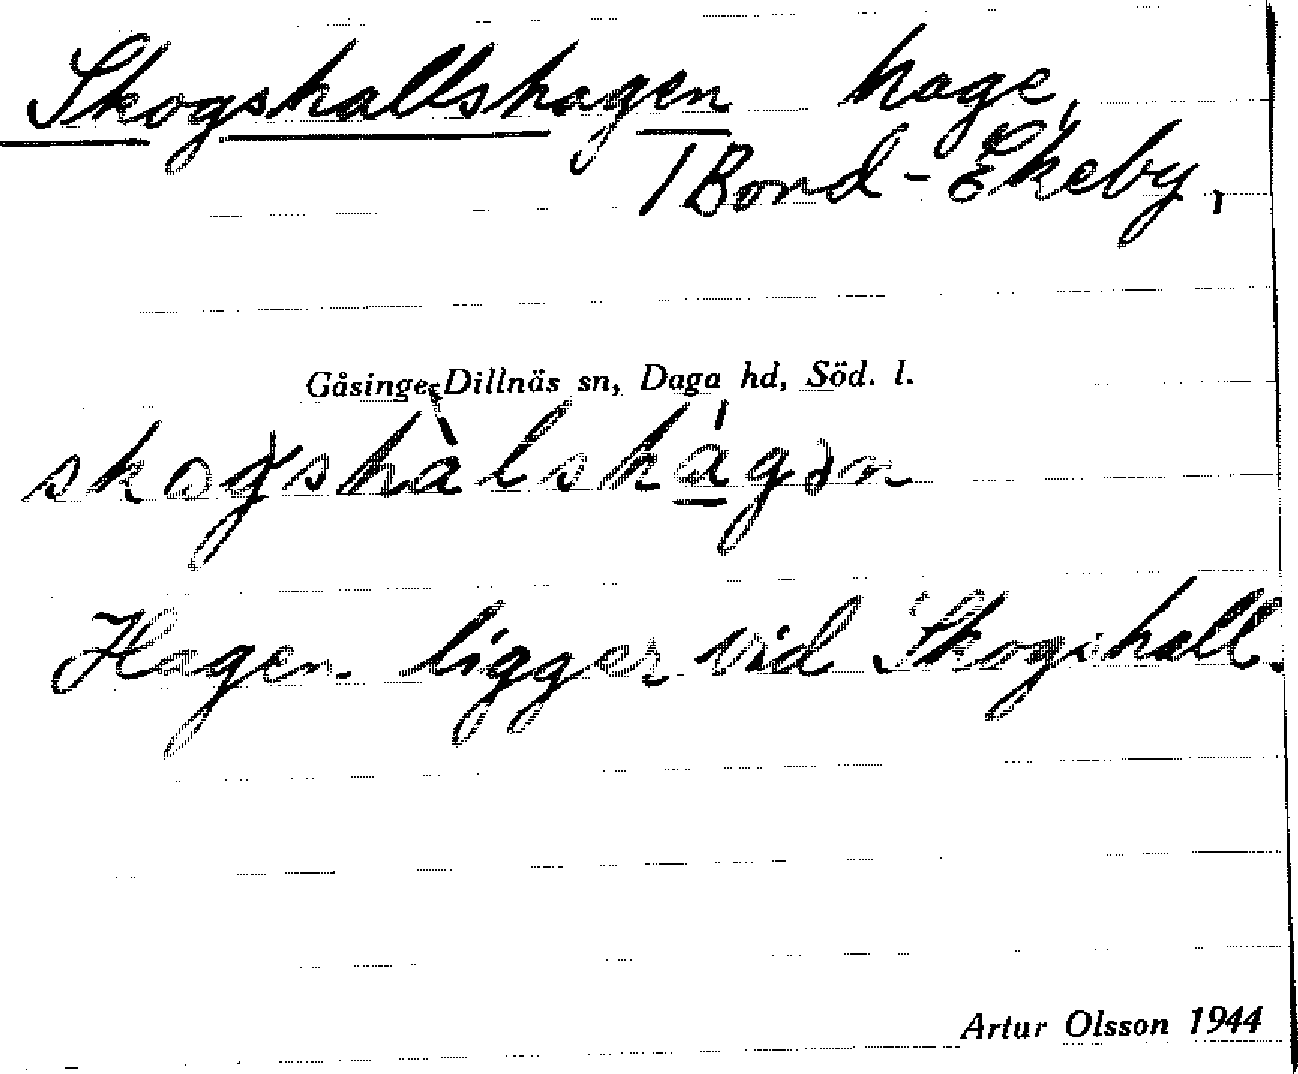 Skogshallshagen hage,
/Bond-Ekeby,
Gåsinge-Dillnäs sn, Daga hd, Söd. l.
skogshàlshágən
Hagen ligger vid Skogshall.
Artur Olsson 1944